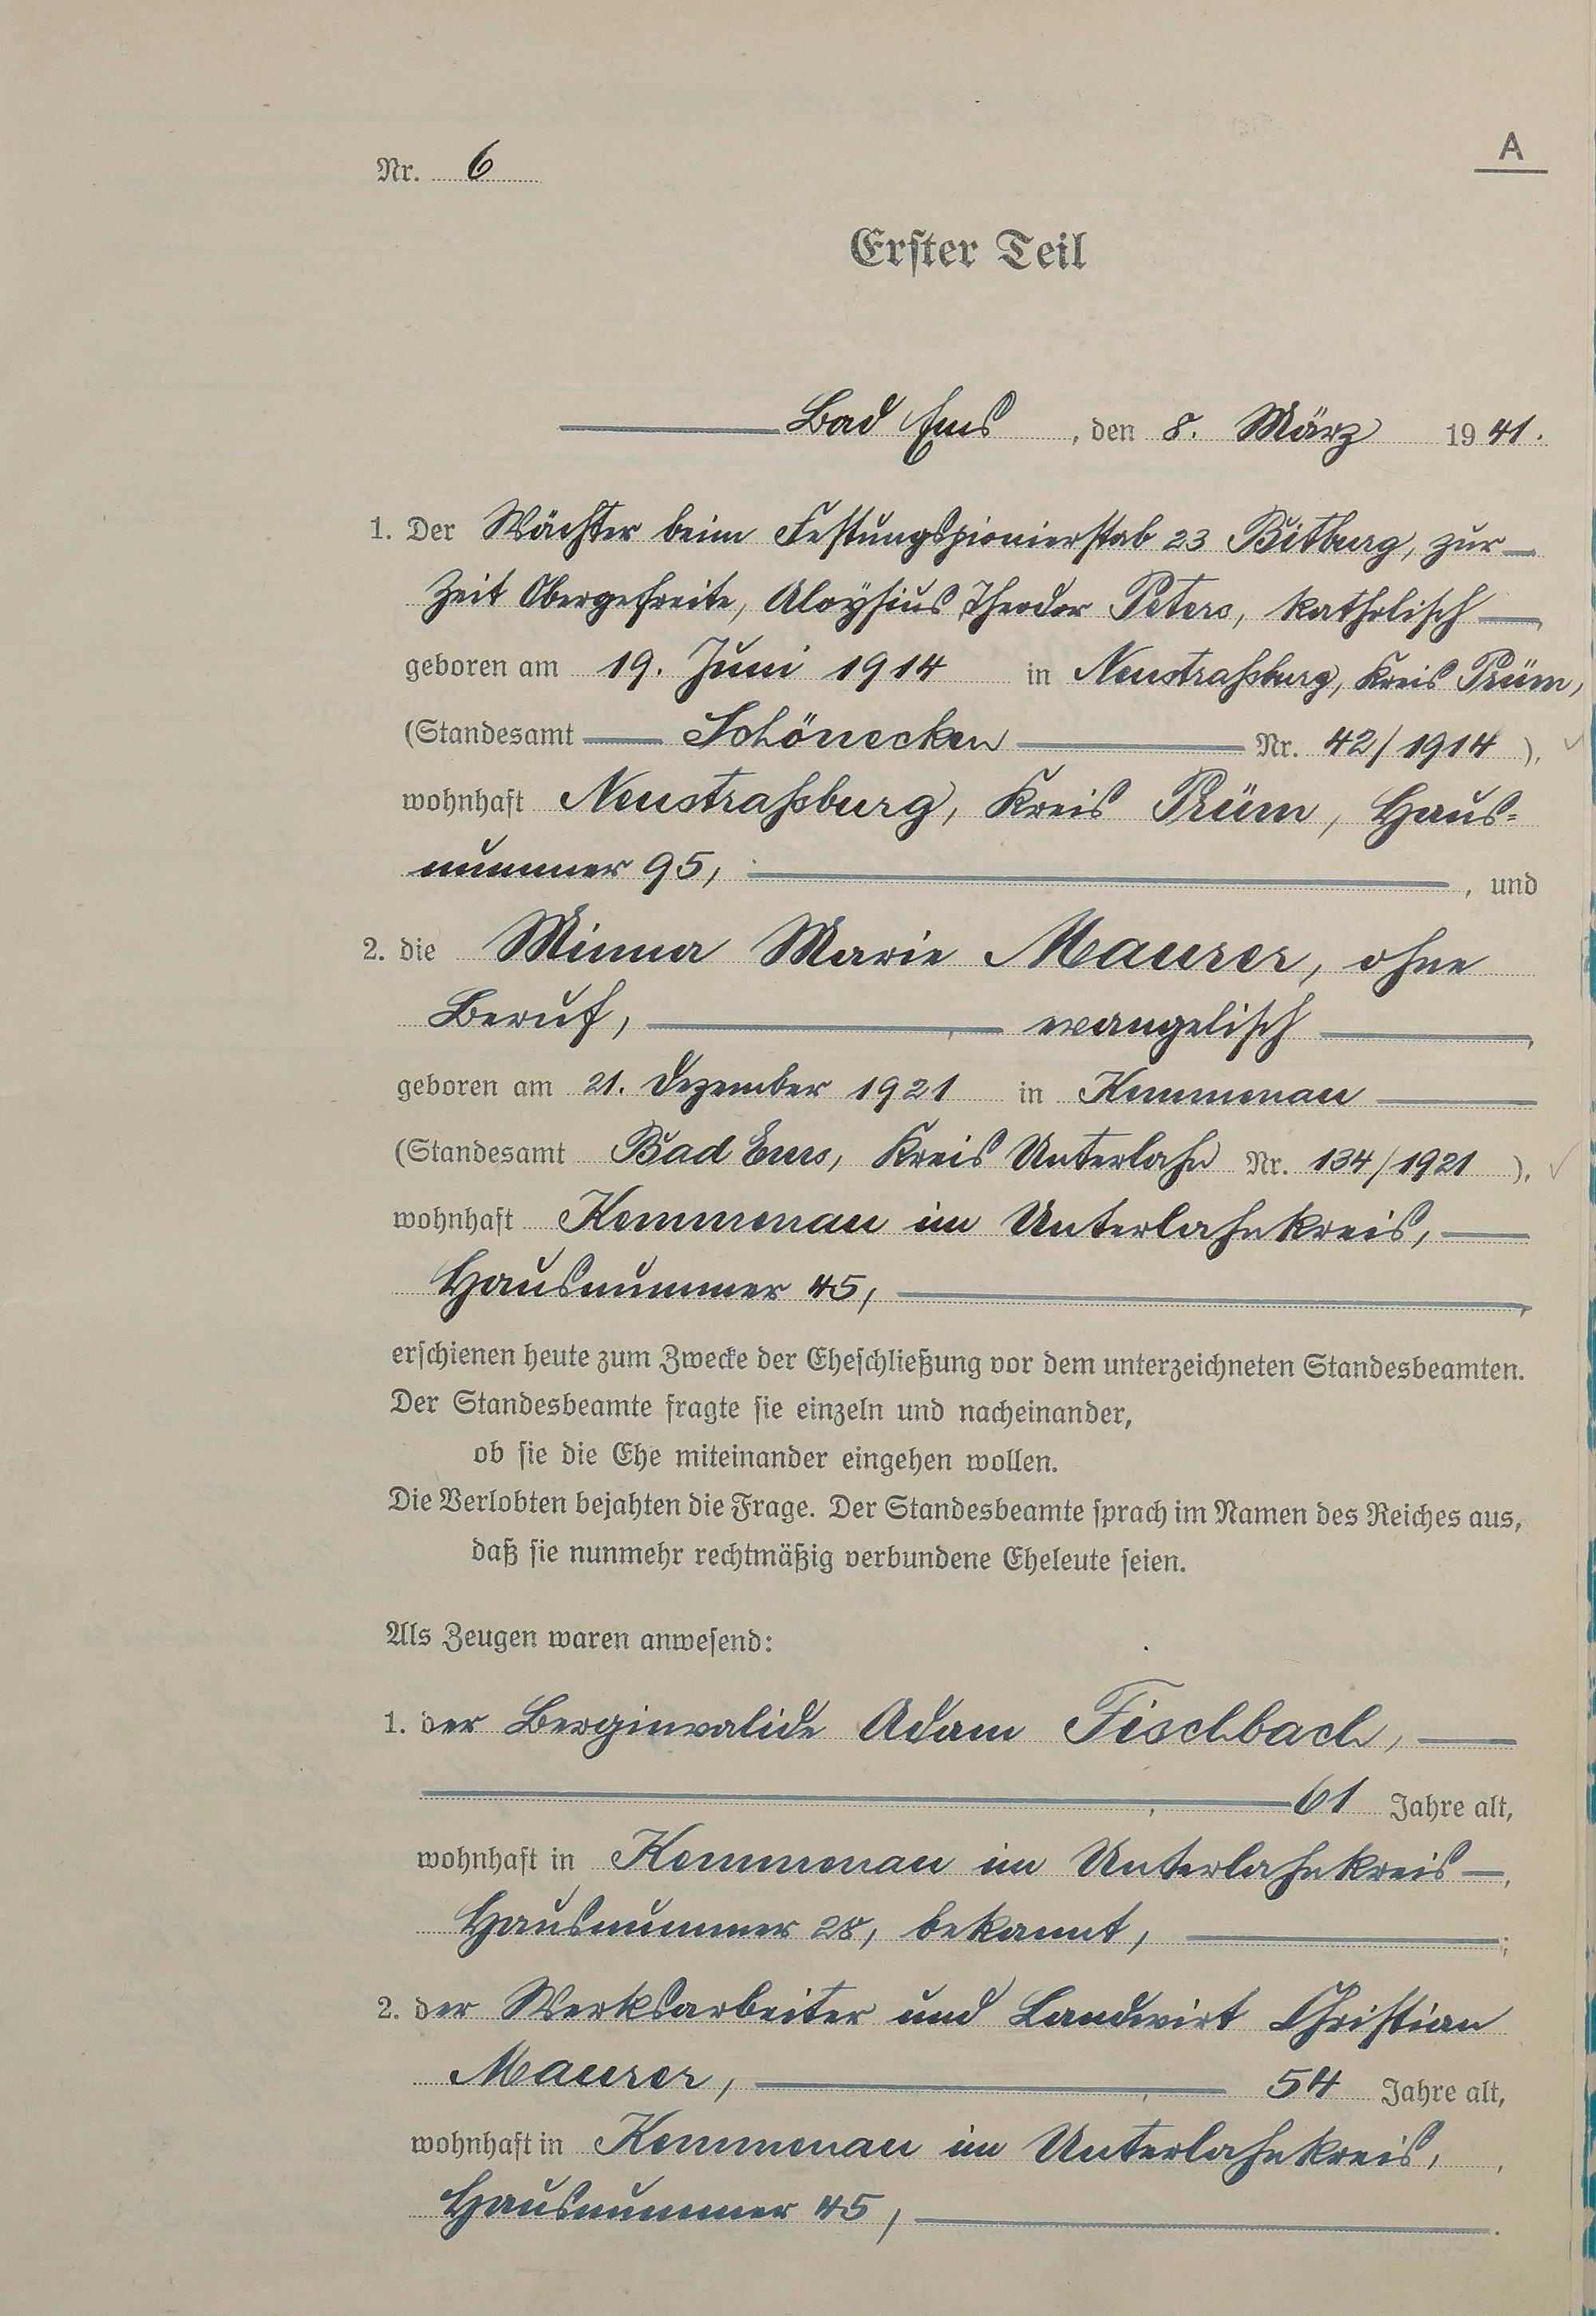 A
Nr. 6
Erster Teil
Bad Ems, den 8. März 1941.
1. Der Wächter beim Festungspionierstab 23 Bitburg, zur
Zeit Obergefreite, Aloysius Theodor Peters, katholisch,
geboren am 19. Juni 1914 in Neustraßburg, Kreis Prüm,
(Standesamt Schönecken Nr. 42/1914),
wohnhaft Neustraßburg, Kreis Prüm, Haus=
nummer 95, , und
2. die Minna Marie Maurer, ohne
Beruf, evangelisch,
geboren am 21. Dezember 1921 in Kemmenau
(Standesamt Bad Ems, Kreis Unterlahn Nr. 134/1921),
wohnhaft Kemmenau im Unterlahnkreis,
Hausnummer 45,
erschienen heute zum Zwecke der Eheschließung vor dem unterzeichneten Standesbeamten.
Der Standesbeamte fragte sie einzeln und nacheinander,
ob sie die Ehe miteinander eingehen wollen.
Die Verlobten bejahten die Frage. Der Standesbeamte sprach im Namen des Reiches aus,
daß sie nunmehr rechtmäßig verbundene Eheleute seien.
Als Zeugen waren anwesend:
1. der Berginvalide Adam Fischbach,
61 Jahre alt,
wohnhaft in Kemmenau im Unterlahnkreis,
Hausnummer 28, bekannt, ;
2. der Werksarbeiter und Landwirt Christian
Maurer, 54 Jahre alt,
wohnhaft in Kemmenau im Unterlahnkreis,
Hausnummer 45, .